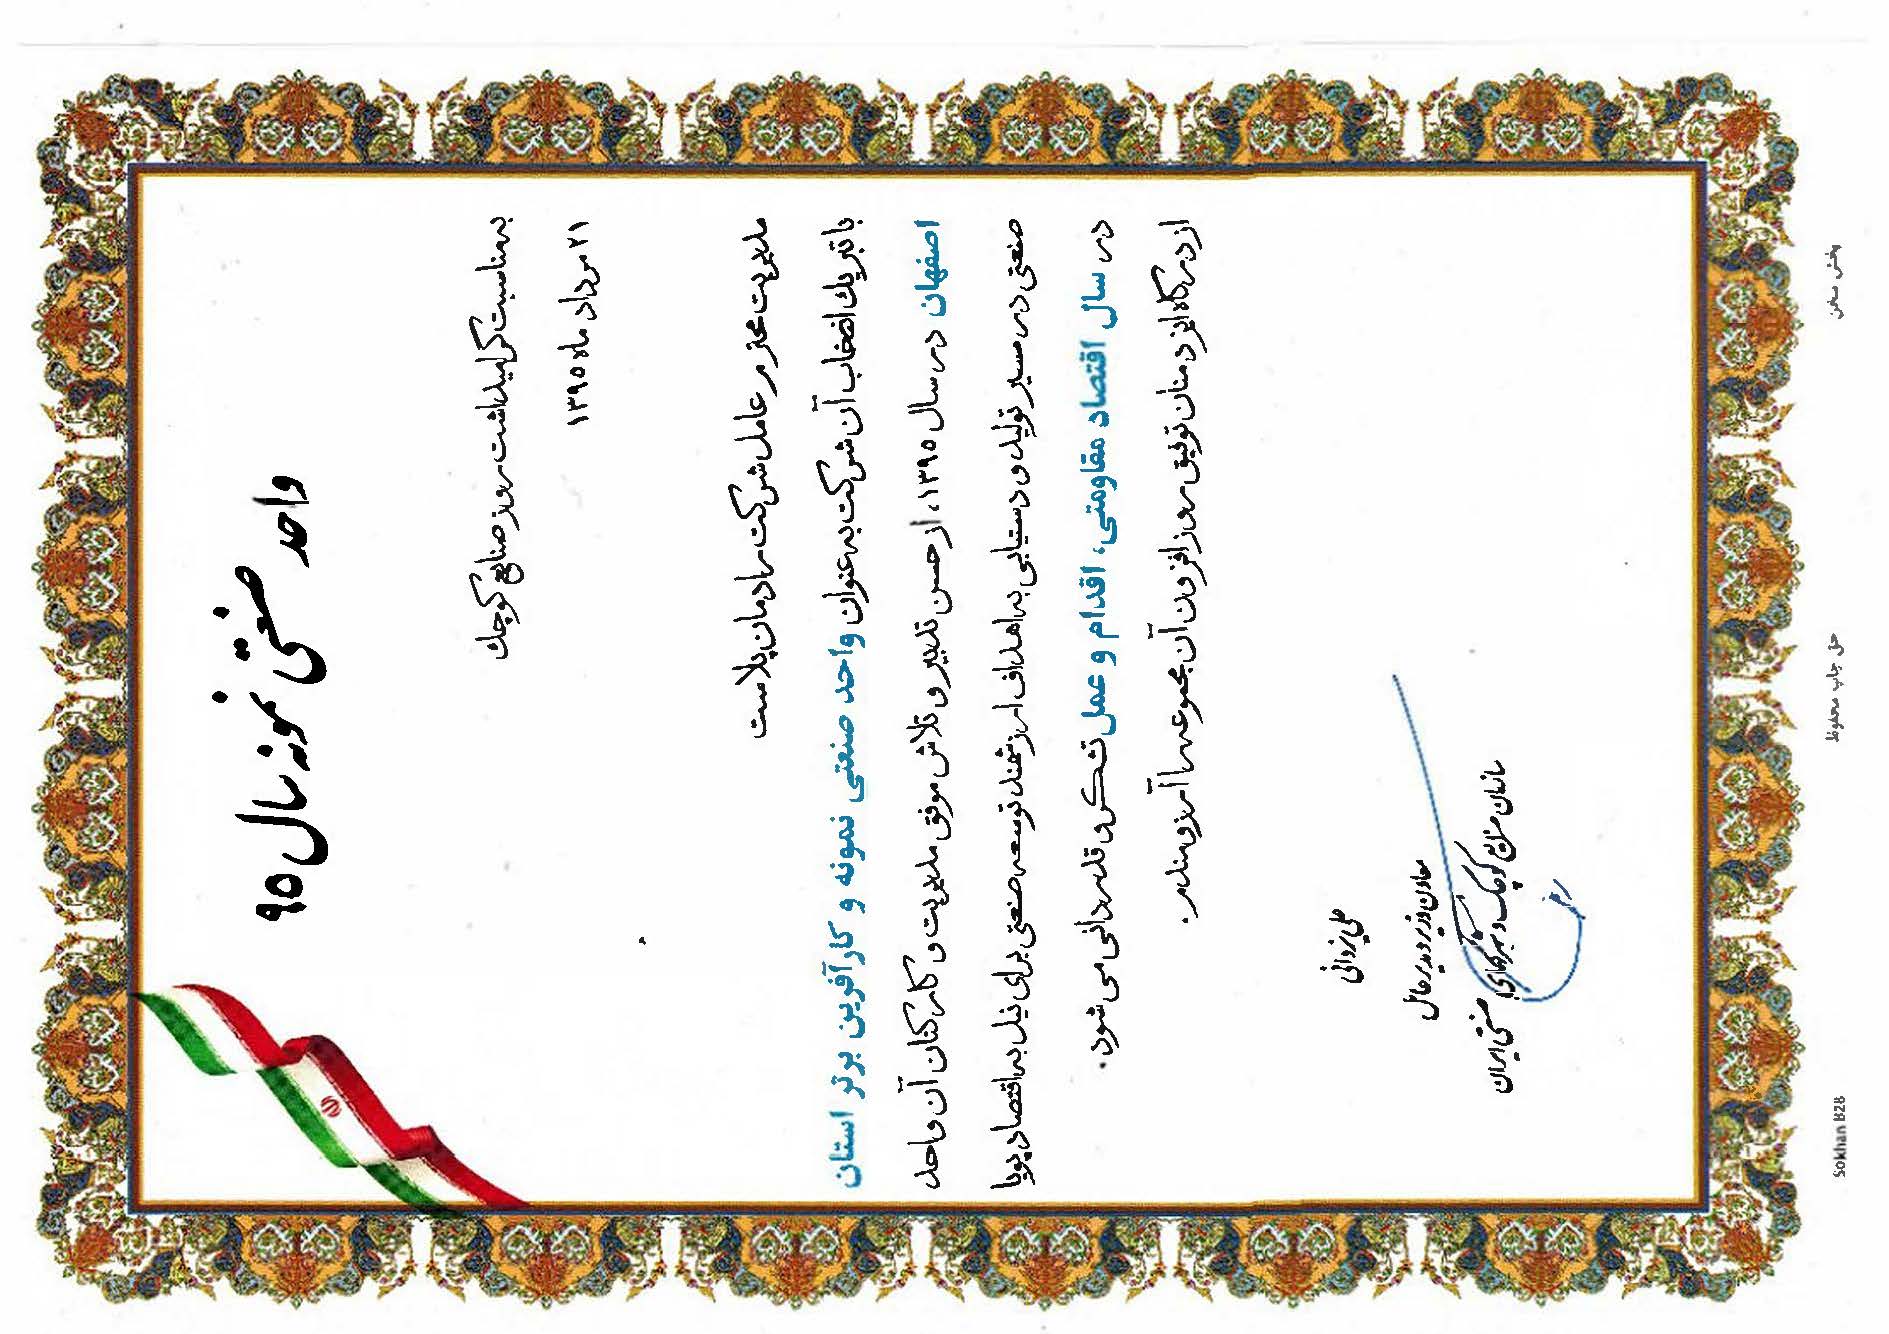 واحد صنعتی نمونه سال ۹۵
به مناسبت گرامیداشت روز صنایع کوچک
۲۱ مرداد ماه ۱۳۹۵
مدیریت محترم عامل شرکت رادمان پلاست
با تبریک انتخاب آن شرکت به عنوان واحد صنعتی نمونه و کارآفرین برتر استان
اصفهان در سال ۱۳۹۵، از حسن تدبیر و تلاش موفق مدیریت و کارکنان آن واحد
صنعتی در مسیر تولید و دستیابی به اهداف ارزشمند توسعه صنعتی برای نیل به اقتصاد پویا
در سال اقتصاد مقاومتی، اقدام و عمل تشکر و قدردانی می شود.
از درگاه ایزد منان توفیق روز افزون آن مجموعه را آرزومندم.
علی یزدانی
معاون وزیر و مدیرعامل
سازمان صنایع کوچک و شهرکهای صنعتی ایران
پخش سخن
حق چاپ محفوظ
Sokhan B28